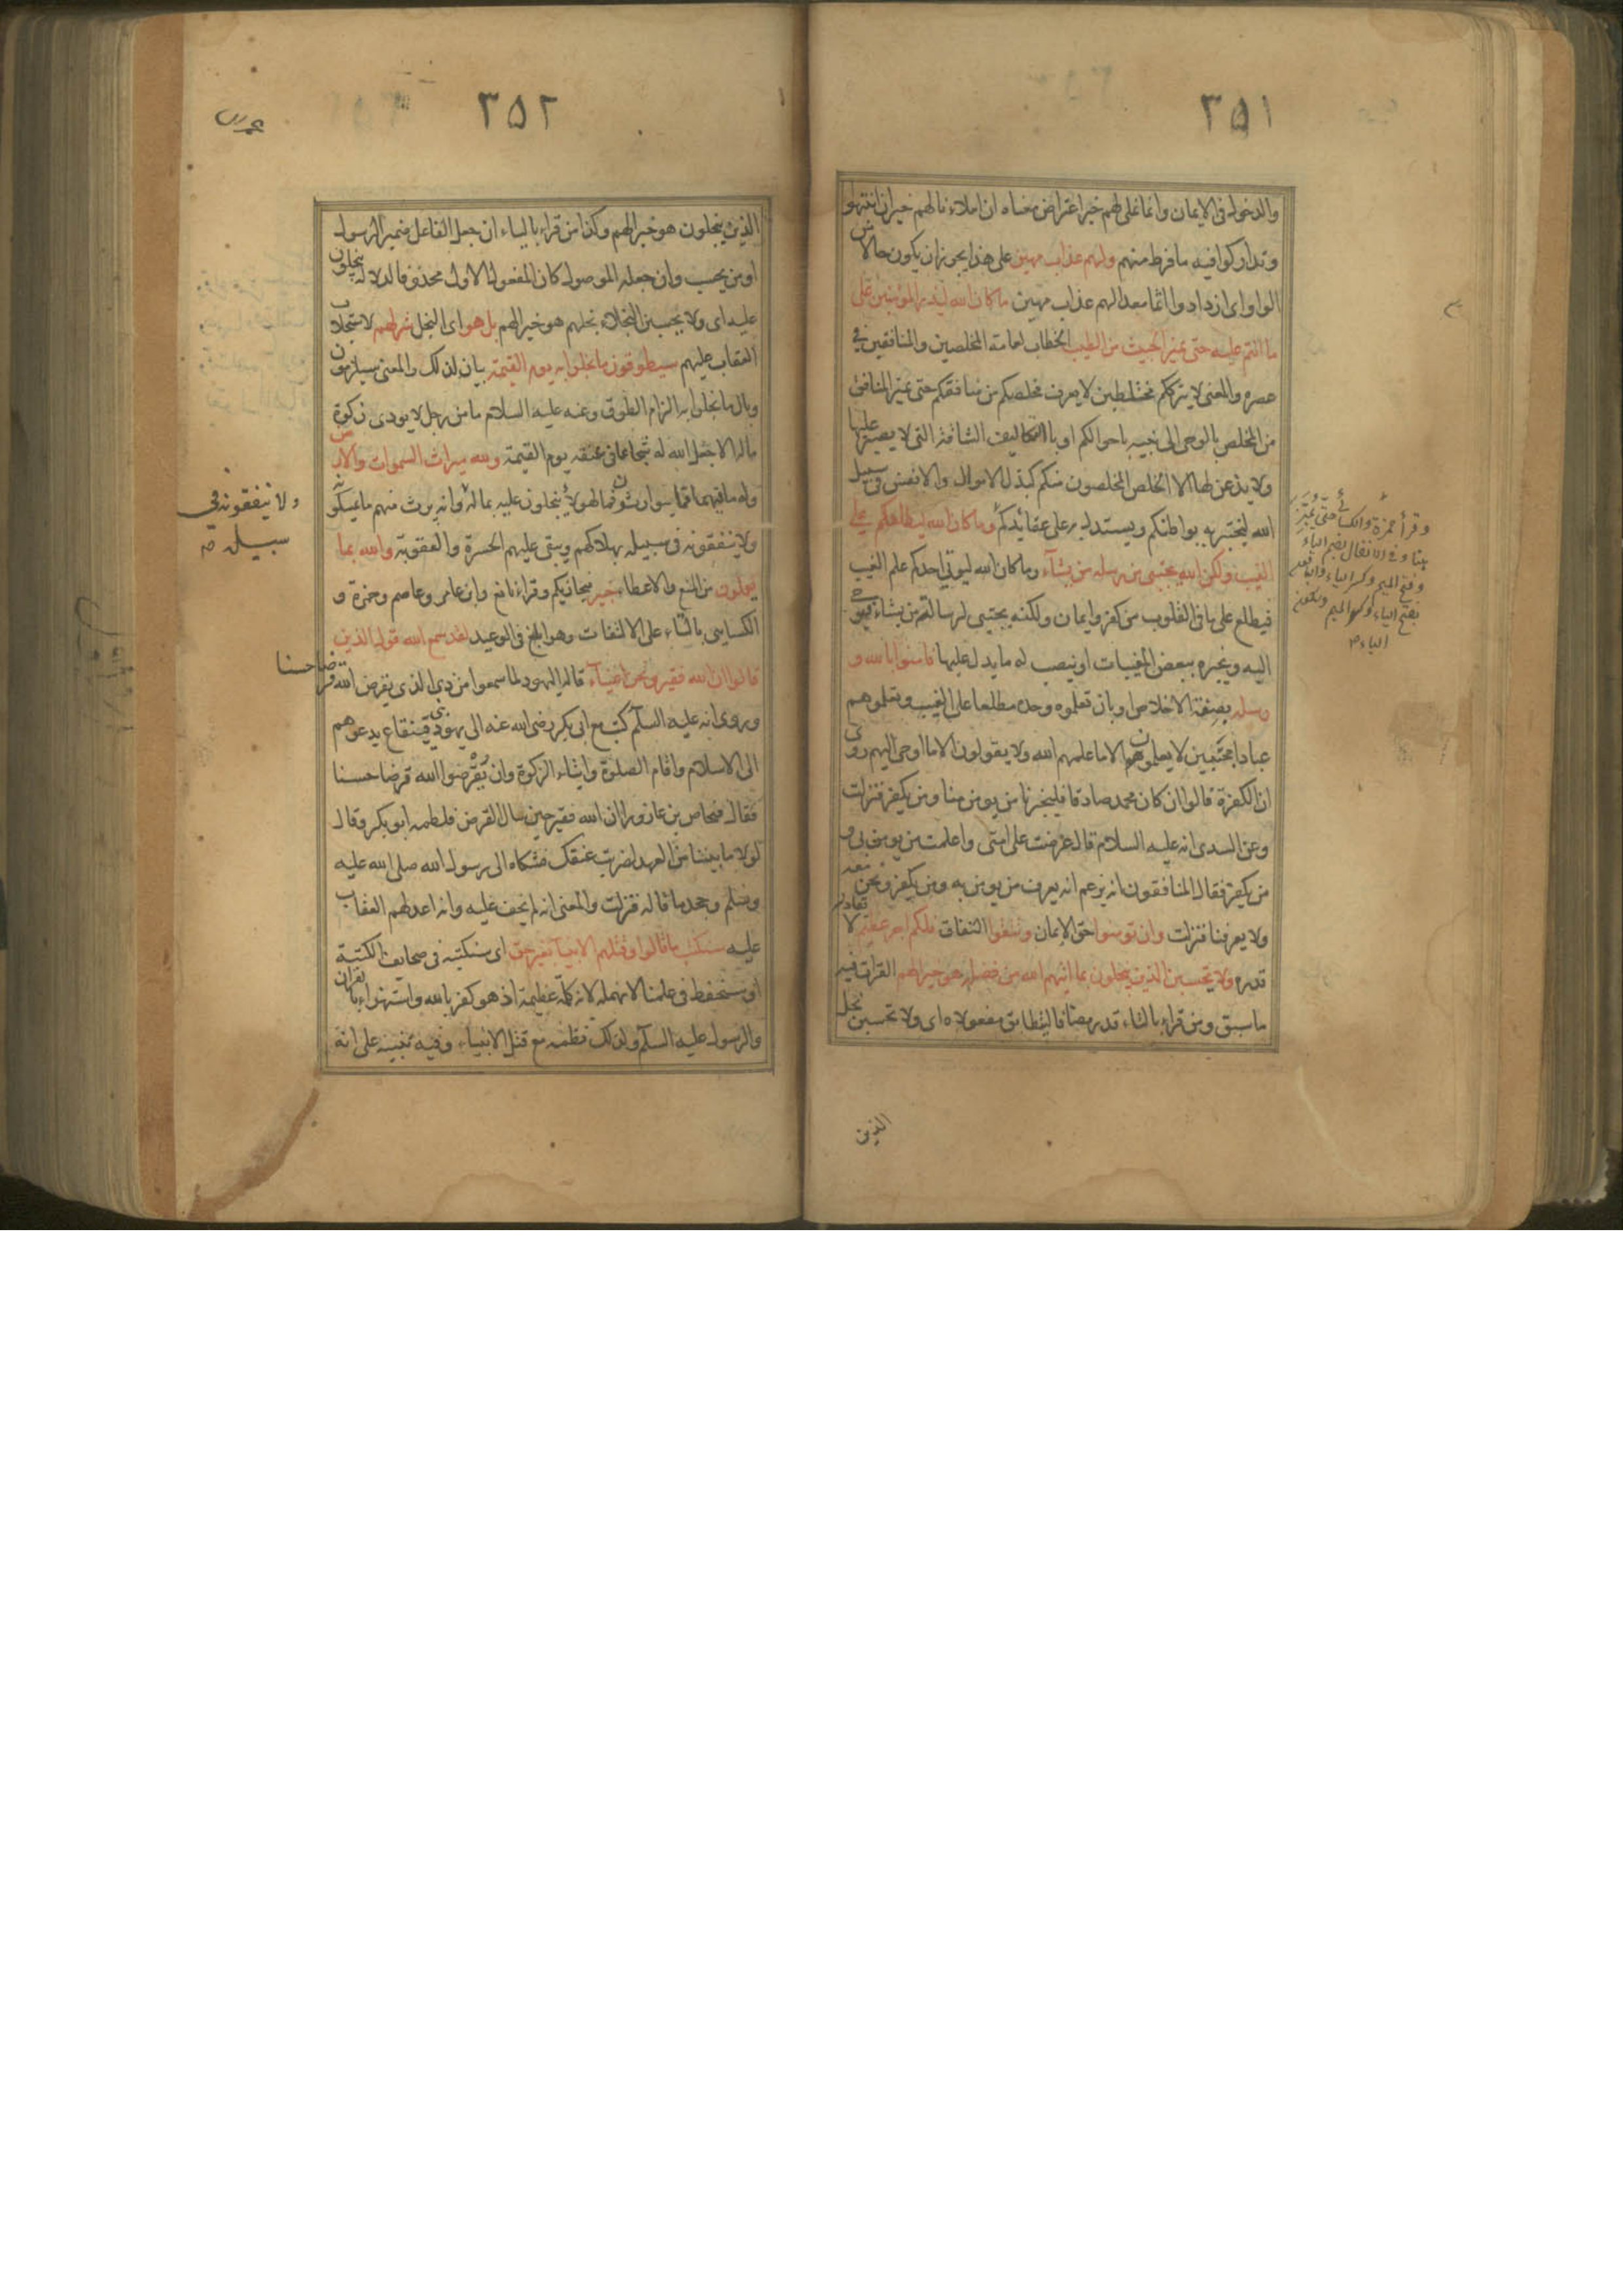 ٣٥١
والدخول فى الايمان وانما نملى لهم خيرا اعتراض معناه ان املاءنا لهم خير ان انتهوا
وتداركوا فيه ما فرط منهم ولهم عذاب مهين على هذا يجوز ان يكون حالا من
الواو اى ازدادوا اثما معدا لهم عذاب مهين ما كان الله ليذر المؤمنين على
ما انتم عليه حتى يميز الخبيث من الطيب الخطاب لعامة المخلصين والمنافقين فى
عصره والمعنى لا يترككم مختلطين لا يعرف مخلصكم من منافقكم حتى يميز المنافق
من المخلص بالوحى الى نبيه باحوالكم او بالتكاليف الشاقة التى لا يصبر عليها
ولا يذعن لها الا الخلص المخلصون منكم كبذل الاموال والانفس فى سبيل
الله ليختبر به بواطنكم ويستدل به على عقائدكم وما كان الله ليطلعكم على
الغيب ولكن الله يجتبى من رسله من يشاء وما كان الله ليوتى احدكم علم الغيب
فيطلع على ما فى القلوب من كفر وايمان ولكنه يجتبى لرسالته من يشاء فيوحى
اليه ويخبره ببعض المغيبات او ينصب له ما يدل عليها فامنوا بالله و
رسله بصفة الاخلاص او بان تعلموه وحده مطلعا على الغيب وتعلموهم
عبادا مجتبين لا يعلمون الا ما علمهم الله ولا يقولون الا ما اوحى اليهم روى
ان الكفرة قالوا ان كان محمد صادقا فليخبرنا من يومن منا ومن يكفر فنزلت
وعن السدى انه عليه السلام قال عرضت على امتى واعلمت من يومن بى و
من يكفر فقال المنافقون انه يزعم انه يعرف من يومن به ومن يكفر ونحن معه
ولا يعرفنا فنزلت وان تومنوا حق الايمان وتتقوا النفاق فلكم اجر عظيم لا يقادر
قدره ولا تحسبن الذين يبخلون بما اتيهم الله من فضله هو خيرا لهم القرات فيه
ما سبق ومن قراء بالتاء قدر مضافا ليتطابق مفعولاه اى ولا تحسبن بخل
وقرأ حمزة والكسائى حتى يُمَيِّزَ
هنا وفى الانفال بضم الياء
وفتح الميم وكسر الياء والباقون
بفتح الياء وكسر الميم وسكون
الياء ص
الذين
٣٥٢
الذين يبخلون هو خيرا لهم وكذا من قراء بالياء ان جعل الفاعل ضمير الرسول
او من يحسب وان جعله الموصول كان المفعول الاول محذوفا لدلالة يبخلون
عليه اى ولا يحسبن البخلاء بخلهم هو خيرا لهم بل هو اى البخل شر لهم لاستجلاب
العقاب عليهم سيطوقون ما بخلوا به يوم القيمة بيان لذلك والمعنى سيلزمون
وبال ما بخلوا به الزام الطوق وعنه عليه السلام ما من رجل لا يودى زكوة
ماله الا جعل الله له شجاعا فى عنقه يوم القيمة ولله ميراث السموات والارض
وله ما فيهما مما يتوارثون فما لهولاء يبخلون عليه بماله او انه يرث منهم ما يمسكونه
ولا ينفقونه فى سبيله بهلاكهم ويبقى عليهم الحسرة والعقوبة والله بما
يعملون من المنع والاعطاء خبير فيجازيكم وقراء نافع وابن عامر وعاصم وحمزة و
الكسايى بالتاء على الالتفات وهو ابلغ فى الوعيد لقد سمع الله قول الذين
قالوا ان الله فقير ونحن اغنياء قاله اليهود لما سمعوا من ذى الذى يقرض الله قرضا حسنا
وروى انه عليه السلم كتب مع ابى بكر رضى الله عنه الى يهود بنى قينقاع يدعوهم
الى الاسلام واقام الصلوة وايتاء الزكوة وان يُقْرِضوا الله قرضا حسنا
فقال فنحاص بن عازورا ان الله فقير حين سال القرض فلطمه ابو بكر وقال
لولا ما بيننا من العهد لضربت عنقك فشكاه الى رسول الله صلى الله عليه
وسلم وجحد ما قاله فنزلت والمعنى انه لم يخف عليه وانه اعد لهم العقاب
عليه سنكتب ما قالوا وقتلهم الانبياء بغير حق اى سنكتبه فى صحايف الكتبة
او سنحفظه فى علمنا لا نهمله لانه كلمة عظيمة اذ هو كفر بالله واستهزاء بالقران
والرسول عليه السلم ولذلك نظمه مع قتل الانبياء وفيه تنبيه على انه
ولا ينفقونه فى
سبيله ص